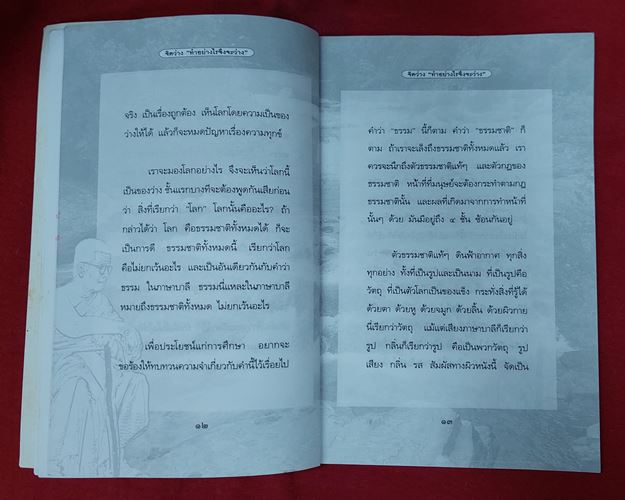 จิตว่าง "ทำอย่างไรจึงจะว่าง"
จริง เป็นเรื่องถูกต้อง เห็นโลกโดยความเป็นของ
ว่างให้ได้ แล้วก็จะหมดปัญหาเรื่องความทุกข์
เราจะมองโลกอย่างไร จึงจะเห็นว่าโลกนี้
เป็นของว่าง ขั้นแรกบางทีจะต้องพูดกันเสียก่อน
ว่า สิ่งที่เรียกว่า "โลก" โลกนั้นคืออะไร? ถ้า
กล่าวได้ว่า โลก คือธรรมชาติทั้งหมดได้ ก็จะ
เป็นการดี ธรรมชาติทั้งหมดนี้ เรียกว่าโลก
คือไม่ยกเว้นอะไร และเป็นอันเดียวกันกับคำว่า
ธรรม ในภาษาบาลี ธรรมนี่แหละในภาษาบาลี
หมายถึงธรรมชาติทั้งหมด ไม่ยกเว้นอะไร
เพื่อประโยชน์แก่การศึกษา อยากจะ
ขอร้องให้ทบทวนความจำเกี่ยวกับคำนี้ไว้เรื่อยไป
๑๒
จิตว่าง "ทำอย่างไรจึงจะว่าง"
คำว่า "ธรรม" นี้ก็ตาม คำว่า "ธรรมชาติ" ก็
ตาม ถ้าเราจะเล็งถึงธรรมชาติทั้งหมดแล้ว เรา
ควรจะนึกถึงตัวธรรมชาติแท้ๆ และตัวกฎของ
ธรรมชาติ หน้าที่ที่มนุษย์จะต้องกระทำตามกฎ
ธรรมชาตินั้น และผลที่เกิดมาจากการทำหน้าที่
นั้นๆ ด้วย มันมีอยู่ถึง ๔ ชั้น ซ้อนกันอยู่
ตัวธรรมชาติแท้ๆ ดินฟ้าอากาศ ทุกสิ่ง
ทุกอย่าง ทั้งที่เป็นรูปและเป็นนาม ที่เป็นรูปคือ
วัตถุ ที่เป็นตัวโลกเป็นของแข็ง กระทั่งสิ่งที่รู้ได้
ด้วยตา ด้วยหู ด้วยจมูก ด้วยลิ้น ด้วยผิวกาย
นี่เรียกว่าวัตถุ แม้แต่เสียงภาษาบาลีก็เรียกว่า
รูป กลิ่นก็เรียกว่ารูป คือเป็นพวกวัตถุ รูป
เสียง กลิ่น รส สัมผัสทางผิวหนังนี้ จัดเป็น
๑๓